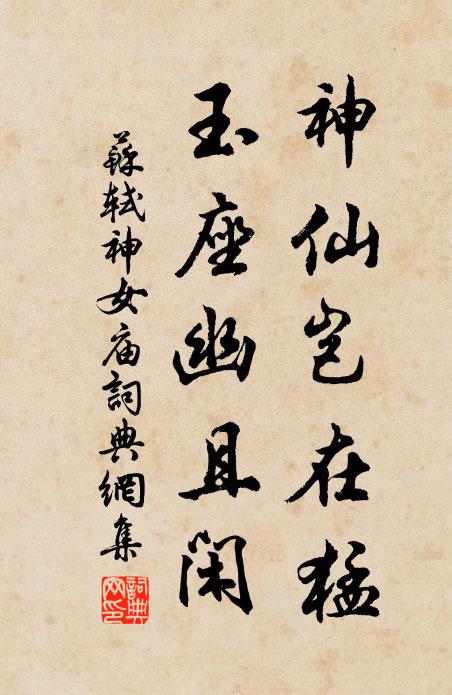 神仙岂在猛
玉座幽且闲
蘇軾神女庙詞典網集
詞典
网印